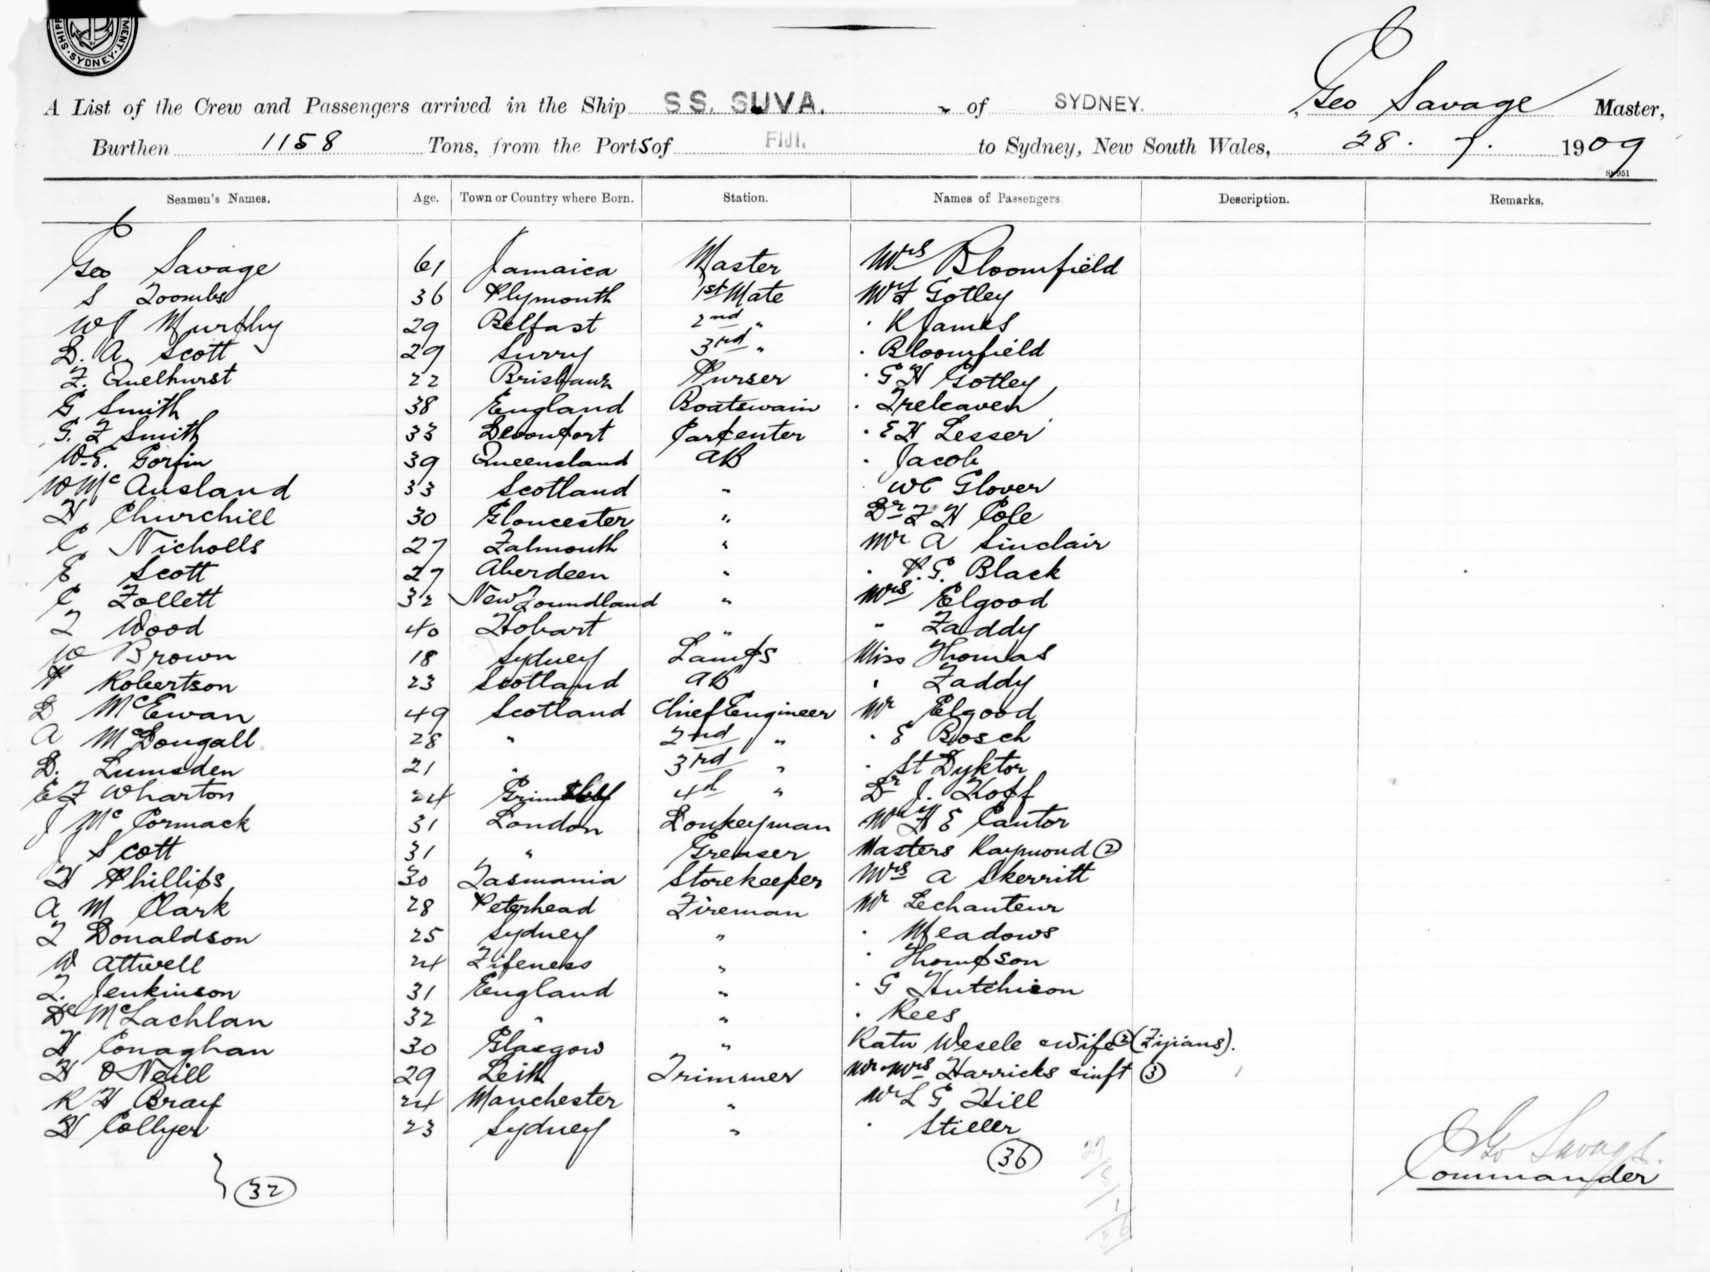 SHIP MENT. SYDNEY.
A List of the Crew and Passengers arrived in the Ship S.S. SUVA. of SYDNEY. Geo Savage Master,
Burthen 1158 Tons, from the Ports of FIJI. to Sydney, New South Wales, 28. 7. 1909
Seamen's Names. Age. Town or Country where Born. Station. Names of Passengers Description. Remarks.
Geo Savage 61 Jamaica Master Mrs Bloomfield
S Toombs 36 Plymouth 1st Mate Mr F Gotley
WJ Murphy 29 Belfast 2nd " . R James
D. A. Scott 29 Surry 3rd " . Bloomfield
F. Quelhurst 22 Brisbane Purser . G H Gotley
G Smith 38 England Boatswain . Treleaven
G. F Smith 33 Devonport Carpenter . E H Lesser
W.E. Gorfin 39 Queensland AB . Jacob
W McAusland 33 Scotland " . WC Glover
H Churchill 30 Gloucester " Dr F H Cole
C Nicholls 27 Falmouth " Mr A Sinclair
E Scott 27 Aberdeen " . P. G. Black
C Follett 32 Newfoundland " Mrs Elgood
F Wood 40 Hobart " " Faddy
W Brown 18 Sydney Lamps Miss Thomas
P Robertson 23 Scotland AB " Faddy
D McEwan 49 Scotland Chief Engineer Mr Elgood
A McDougall 28 " 2nd " . E Bosch
D. Lumsden 21 " 3rd " . St Dyktor
E F Wharton 24 Grimsby 4th " Dr J. Hoff
J McCormack 31 London Donkeyman Mr H E Cantor
J Scott 31 " Greaser Masters Raymond (2)
H Phillips 30 Tasmania Storekeeper Mrs A Skerritt
A M Clark 28 Peterhead Fireman Mr Lechanteur
F Donaldson 25 Sydney " . Meadows
W Attwell 24 Fifeness " . Thompson
F. Jenkinson 31 England " . G Hutchison
D McLachlan 32 " " . Rees
H Conaghan 30 Glasgow " Ratu Wesele & wife (2) (Fijians).
H O'Neill 29 Leith Trimmer Mr & Mrs Harricks & inft (3)
R H Bray 24 Manchester " Mr L G Hill
H Collyer 23 Sydney " . Stiller
(32) (36)
Geo Savage.
Commander